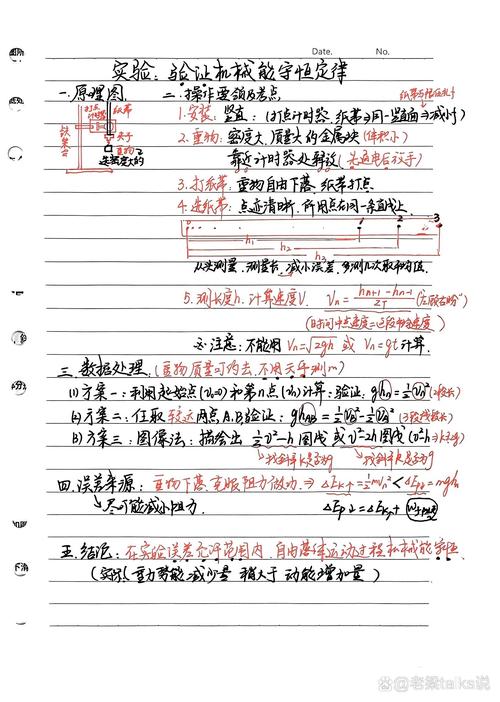 Date. No.
实验：验证机械能守恒定律
一.原理图
打点
计时器
纸带
铁架台
夹子
重物
二.操作要领及考点
1.安装：竖直（打点计时器、纸带
同一竖直面
减小f）
2.重物：密度大、质量大的金属块（体积小）
靠近计时器处释放（先通电后放手）
3.打纸带：重物自由下落，纸带打点.
4.选纸带：点迹清晰、所用点在同一条直线上.
0 1 2 3
h₁
h₂
h₃
从头测量，测量长，减小误差，多测几次取平均值.
5.测长度h.计算速度V. Vn=(hn+1-hn-1)/2T
（时间中点速度=这段平均速度）
注意：不能用Vn=√2gh 或 Vn=gt计算.
三.数据处理（重物质量可约去，不用天平测m）
(1)方案一：利用起始点(v₀=0)和第n点(vn)计算：验证：ghn=½vn²
(2)方案二：任取较远两点A、B验证：ghAB=½vB²-½vA²
(3)方案三：图像法：描绘出½v²-h图线或v²-2h图线
找斜率k是否为g 找斜率k是否为g
四.误差来源：重物下落，克服阻力做功，⇒ΔEk↑=½mvn²<ΔEp↓=mghn
尽可能减小阻力. ΔEp↓=ΔEk↑+
五.结论：在实验误差允许范围内，自由落体运动过程机械能守恒
（实际重力势能减少量 稍大于 动能增加量）
@老梁talks说